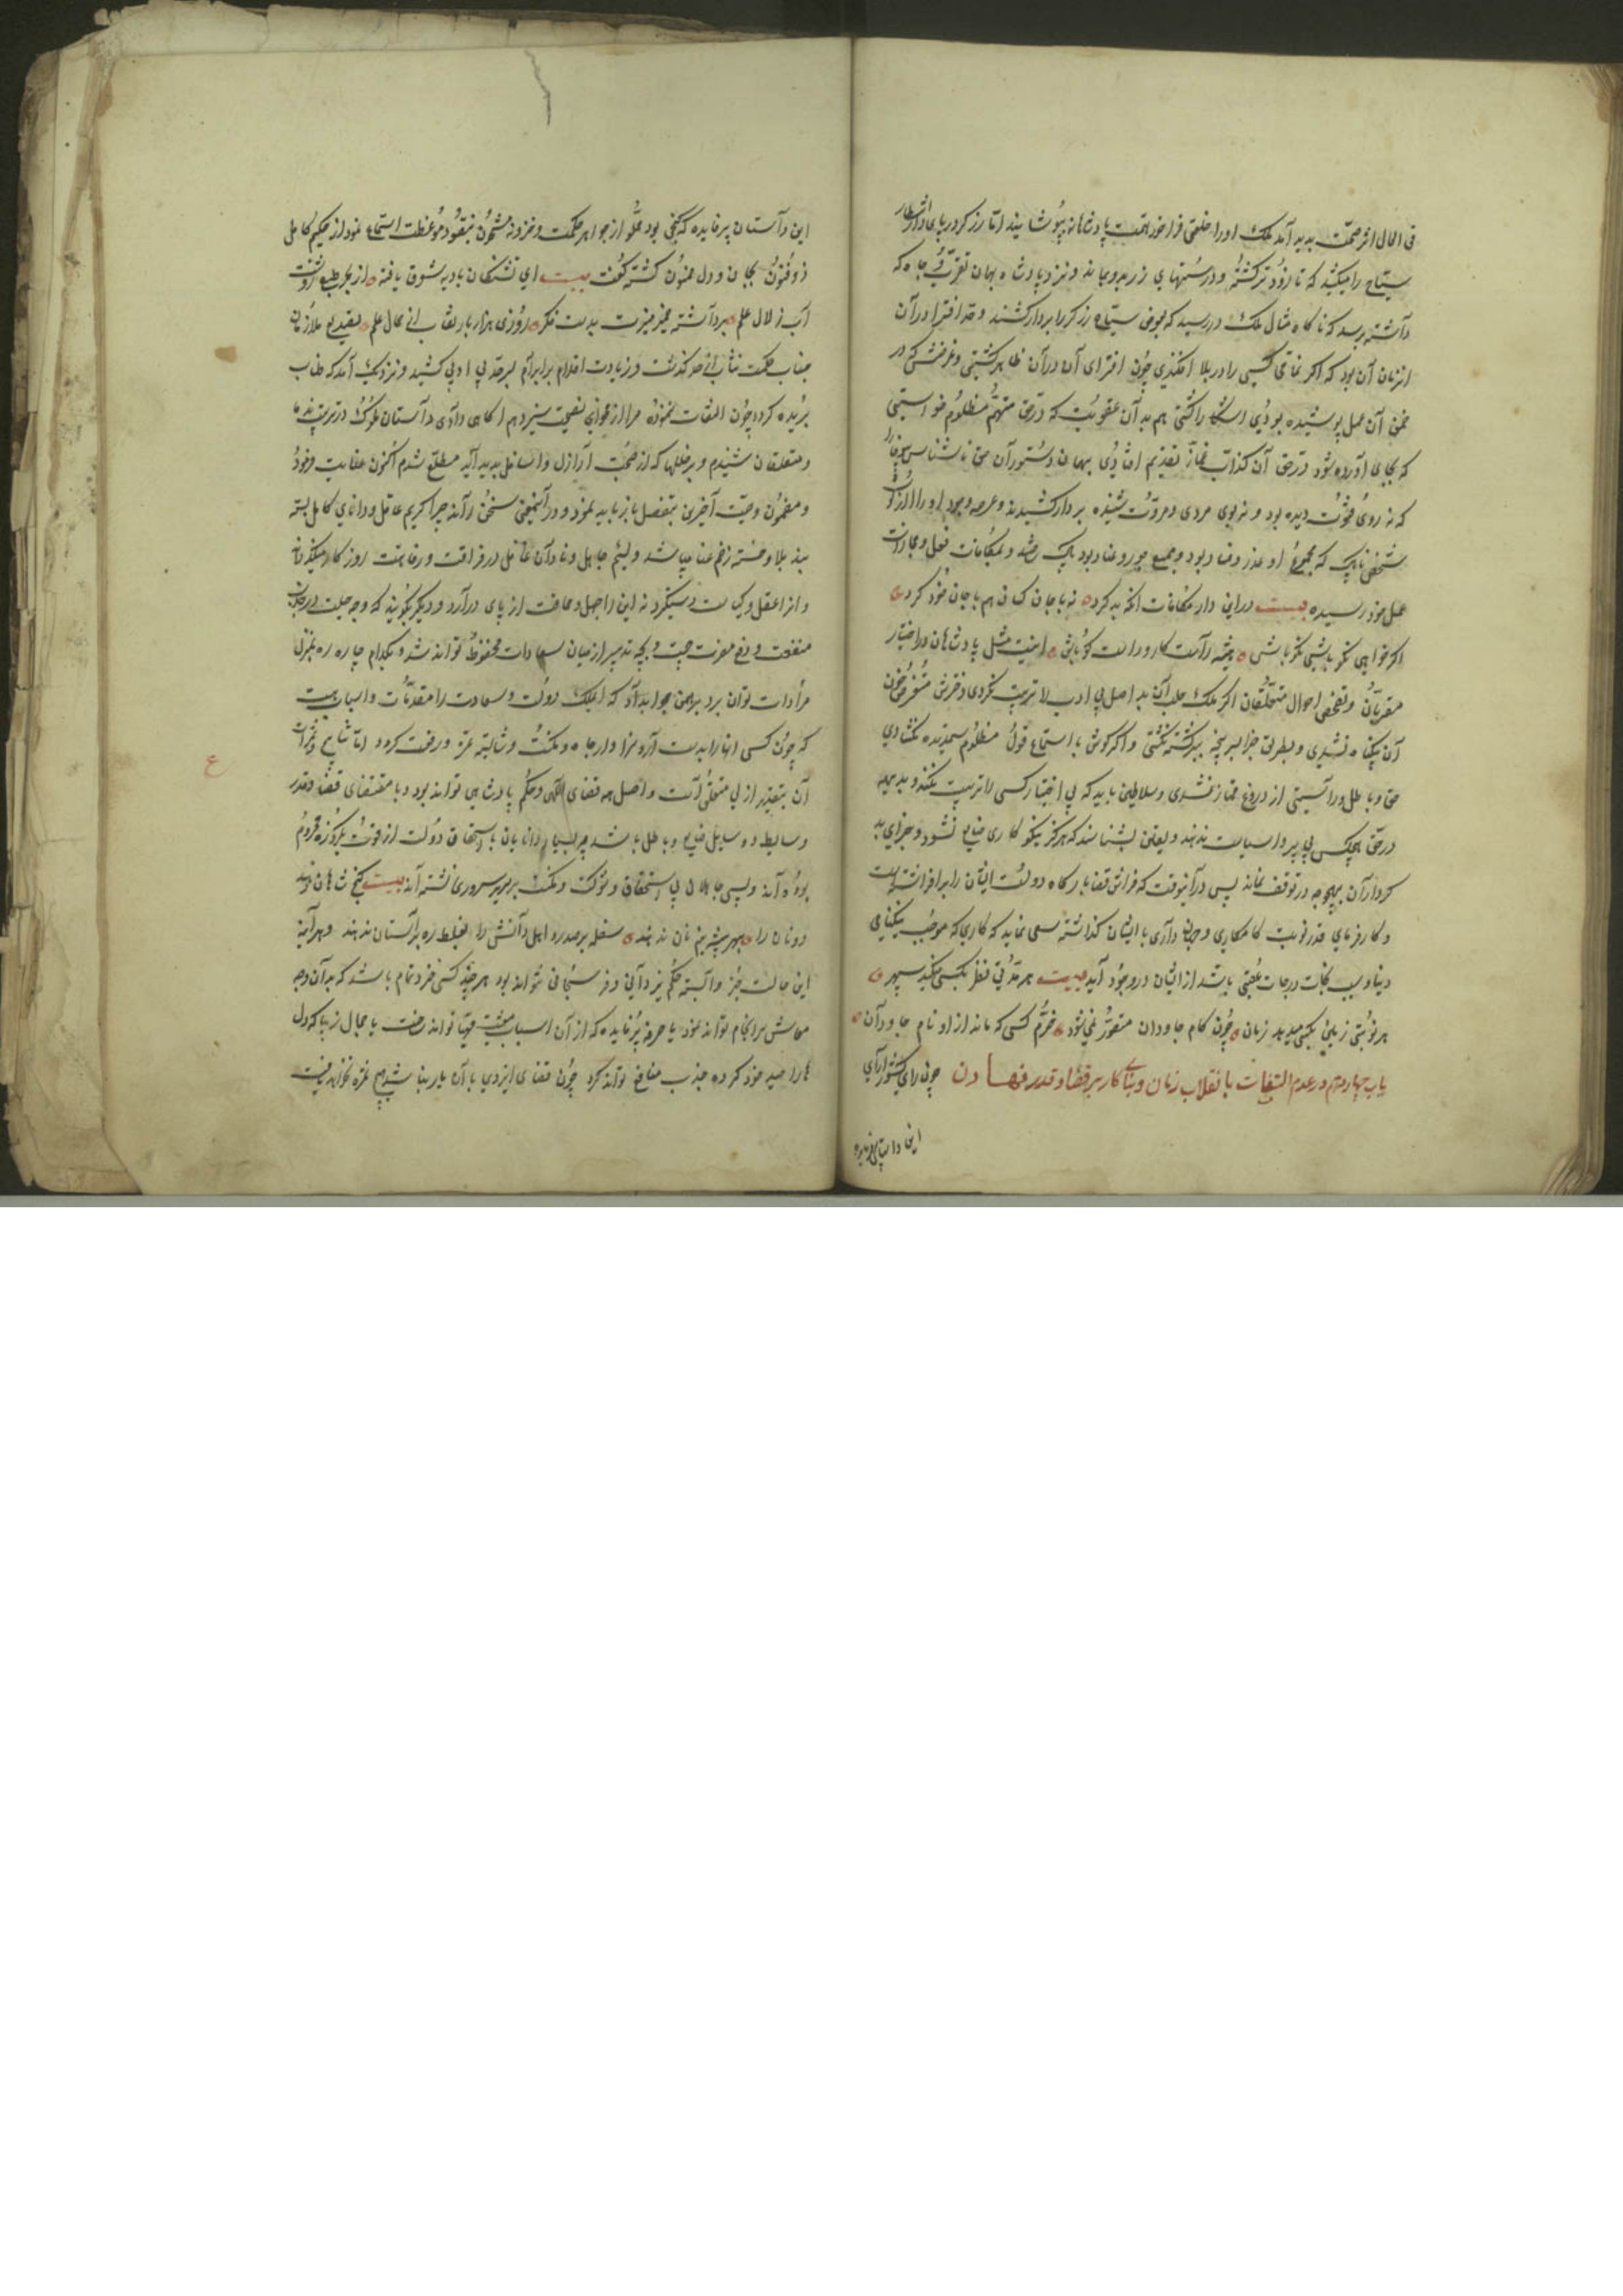 فی الحال اثر صحّت پدید آمد ملک او را خلعتی فراخور همّت پادشاهانه پوشانید اما زرگر در پای دار انتظار
سیّاح را میکشید که تا زودتر کشته و درستهای زر بدو بماند و نزد پادشاه بهمان تقرّب و جاه که
داشته برسد که ناگاه مثال ملک در رسید که بعوض سیّاح زرگر را بردار کشند و حد افترا در آن
زمان آن بود که اگر نمّامی کسی را در بلا افکندی چون افترای آن در آن ظاهر گشتی و غرضش که در
ضمن آن عمل پوشیده بودی آشکارا گشتی هم بدان عقوبت که در حق متهم مظلوم خواستی
که بجای آورده شود در حق آن کذاب غمّاز تقدیم افتادی بهمان دستور آن حق ناشناس بیوفا را
که نه روی فتوت دیده بود و نه بوی مردی و مروّت شنیده بردار کشیدند و عرصه وجود او را از لوث
شخص ناپاک که مجموع او غدر و فساد بود و جمیع جور و عناد بود پاک شد و بمکافات فعل و مجازات
عمل خود رسیده بیت در این دار مکافات آنکه بد کرد نه با جان کسان هم با جان خود کرد
اگر خواهی نکو باشی نکو باش همیشه راست کار و راست گو باش اینست مثل پادشاهان در اختیار
مقرّبان و تفحص احوال متعلّقان اگر ملک حلب آن بد اصل بی ادب را تربیت نکردی دخترش متعرض خون
آن بیگناه نشدی و بطریق جزا ببر بچه ببر کشته نگشتی و اگر گوش با استماع قول مظلوم ستمدیده نگشادی
حق و باطل و راستی از دروغ ممتاز نشدی و سلاطین باید که بی اختیار کسی را تربیت نکنند و بدیهه
در حق هیچکس بی پیر و ا سیاست ندهند و یقین بشناسند که هرگز نیکوکاری ضایع نشود و جزای بد
کرداران بهیچوجه در توقف نماند پس در آنوقت که فراش قضا بارگاه دولت ایشان را بر افراشته است
و کارفرمای قدر نوبت کامکاری و جهانداری با ایشان گذاشته سعی نماید که کاری که موجب نیکنامی
دنیا و سبب نجات درجات عقبی باشد از ایشان در وجود آید بیت هر مدّتی نظر بکسی میکند سپهر
هر نوبتی زمین بکسی میدهد زمان چون کام جاودان متصوّر نمی شود خرّم کسی که ماند از او نام جاودان
باب چهاردهم در عدم التفات با نقلاب زمان و بنای کار بر قضا و قدر نهادن چون رای کشورآرای
این داستان پرفایده
این داستان پرفایده که گنجی بود مملو از جواهر حکمت و خزونه مشحون بنقود موعظت استماع نمود از حکیم کامل
ذوفنون بجان و دل ممنون گشته گفت بیت ای تشنگان بادیه شوق یافته از بحر طبع روشنت
آب زلال علم برداشته ممیّزیت بدست فکر روزی هزار بار نقاب از جمال علم تصدیع ملازمان
جناب حکمت مناب از حد گذشت و زیادت اقدام بر ابرام بسرحد بی ادبی کشید و نزدیک آمد که طناب
بریده گردد چون التفات نموده مرا از خوان نصیحت سیزدهم آگاهی دادی داستان ملوک در تربیت خدم
و متعلقان شنیدم و بر خللها که از صحبت اراذل و اسافل پدید آید مطلع شدم اکنون عنایت فرمود
و مضمون وصیّت آخرین بتفصیل باز باید نمود و در این معنی سخن راند چرا کریم عاقل و دانای کامل بسته
بند بلا و خسته زخم عنا میباشد و لئیم جاهل و نادان غافل در فراغت و رفاهت روزگار میگذراند
و آنرا عقل و کیاست دستگیر و نه این را جهل و حماقت از پای درآرد و دیگر بگویند که وجه حیلت در جذب
منفعت و دفع مضرت چیست و بچه تدبیر از میان سعادات محفوظ تواند شد و بکدام چاره ره بمنزل
مرادات توان برد برهمن جواب داد که ای ملک دولت و سعادت را مقدّمات و اسبابیست
که چون کسی آنها را بدست آرد سزاوار جاه و مکنت و شایسته عزّ و رفعت گردد اما نتایج و ثمرات
آن بتقدیر ازلی متعلّق است و اصل همه قضای الهی و حکم پادشاهی تواند بود و با مقتضای قضا و قدر
وسایط و وسایل ضایع و باطل باشد چه بسیار دانایان باستحقاق دولت از قوت یکروزه محروم
بوده اند و بسی جاهلان بی استحقاق و شوکت و مکنت بر سریر سروری نشسته اند بیت گنج شاهان دهند
دونان را بهر پیشه نیم نان ندهند سفله بر صدر و اهل دانش را بغلط ره بر آستان ندهند و هر آینه
این حالت جز وابسته حکم یزدانی و فر سبحانی نتواند بود هر چند کسی خرد تمام باشد که بدان وجه
معاش سرانجام تواند نمود یا حرفه پرفایده که از آن اسباب معیشت مهیّا تواند ساخت یا جمال زیبا که دل
ها را صید خود کرده جذب منافع تواند کرد چون قضای ایزدی با آن یار نباشد هیچ ثمره نخواهد یافت
ع